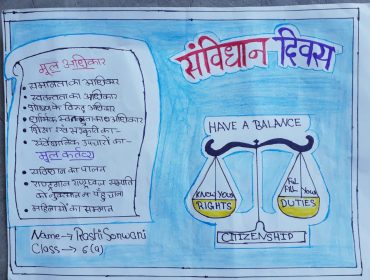 संविधान दिवस
मूल अधिकार
समानता का अधिकार
स्वतन्त्रता का अधिकार
शोषण के विरुद्ध अधिकार
धार्मिक स्वतन्त्रता का अधिकार
शिक्षा एवं संस्कृति का
संवैधानिक उपचारों का
मूल कर्तव्य
संविधान का पालन
राष्ट्रगान राष्ट्रध्वज
को नुकसान न पहुंचाना
महिलाओं का सम्मान
Name → Rashi Sonwani
Class → 6 (a)
HAVE A BALANCE
KNOW YOUR
RIGHTS
FUL
FILL YOUR
DUTIES
CITIZENSHIP